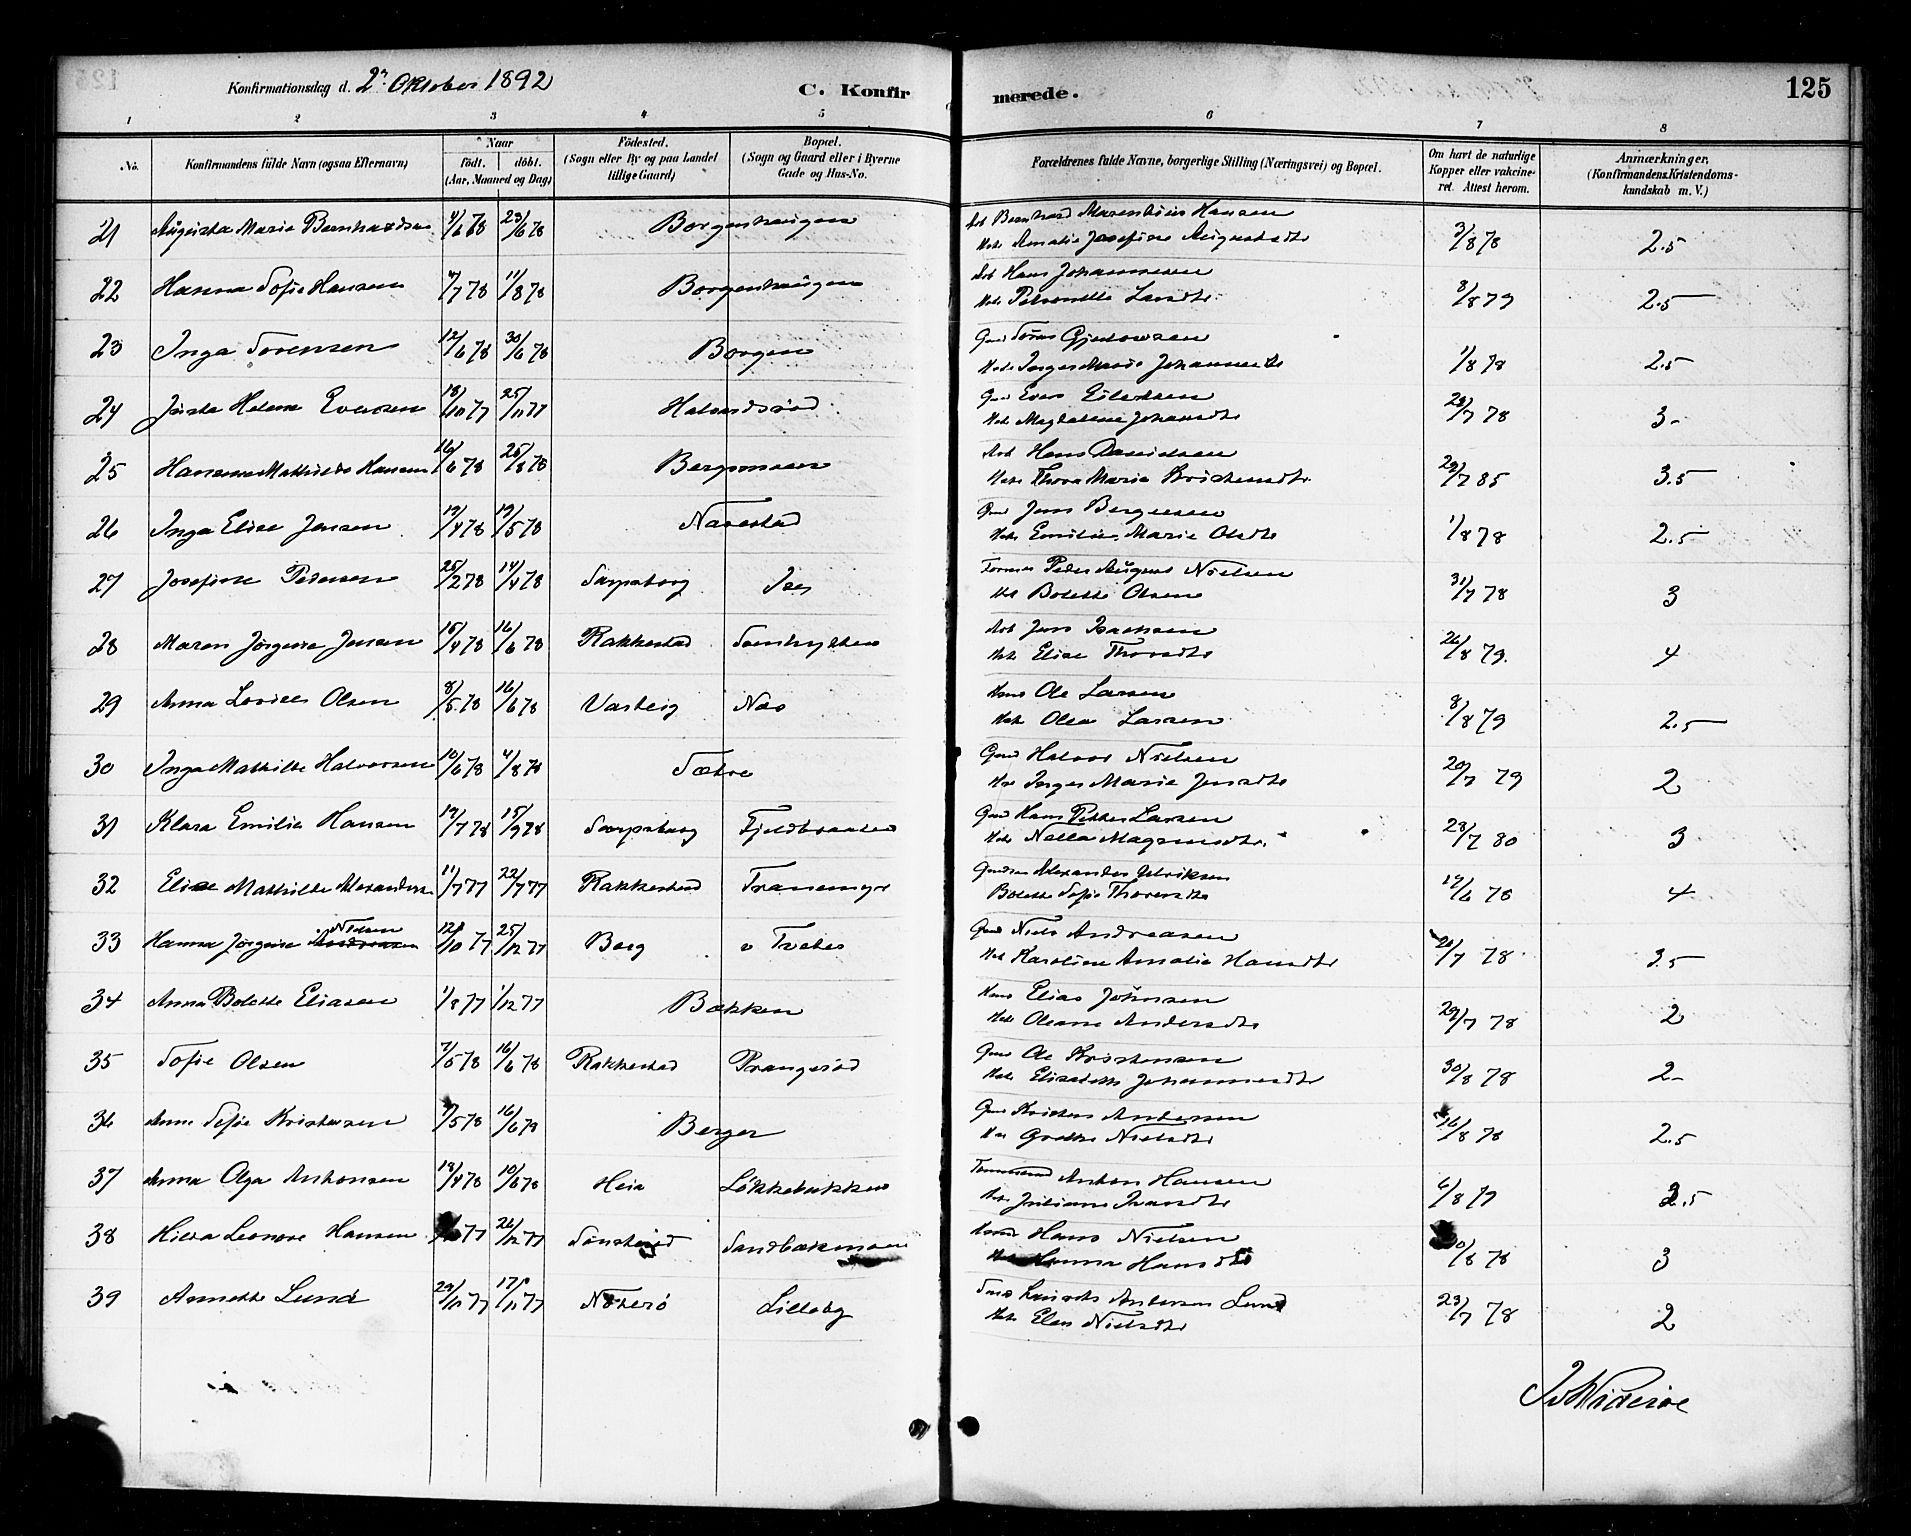 Konfirmationsdag d. 2' Oktober 1892
C. Konfirmerede.
125
1 2 3 4 5 6 7 8
No. Konfirmandens fulde Navn (ogsaa Efternavn) Naar födt. döbt. (Aar, Maaned og Dag) Födested. (Sogn eller By og paa Landet tillige Gaard) Bopæl. (Sogn og Gaard eller i Byerne Gade og Hus-No. Forældrenes fulde Navne, borgerlige Stilling (Næringsvei) og Bopæl. Om havt de naturlige Kopper eller vakcineret. Attest herom. Anmærkninger. (Konfirmandens Kristendomskundskab m. V.)
21 Augusta Marie Bernhardsen 4/6 78 23/6 78 Borgenhaugen Arb Bernhard Hansen 3/8 78 2.5
Amalie Josefine Augustsdtr
22 Hanna Sofie Hansen 4/7 78 11/8 78 Borgenhaugen Arb Hans Johannesen 8/8 79 2.5
Petronelle Larsdtr
23 Inga Sörensen 12/6 78 30/6 78 Borgen Gmd Sören 1/8 78 2.5
Inger Marie Johannesdtr
24 Josta Helene Evensen 18/10 77 25/11 77 Halvordsröd Gmd Even Eilertsen 28/7 78 3-
Magdalene Johansdtr
25 Hansine Mathilde Hansen 16/6 78 25/8 78 Bergsmoen Arb Hans Davidsen 29/7 85 3.5
Thora Marie Kristensdtr
26 Inga Elise Jensen 19/4 78 19/5 78 Navestad Gmd Jens Bergersen 1/8 78 2.5
Emilie Marie Olsdtr
27 Josefine Pedersen 25/2 78 14/4 78 Sarpsborg Ise Peder August Nielsen 31/7 78 3
Bolette Olsen
28 Maren Jörgine Jensen 15/4 78 16/6 78 Rakkestad Arb Jens Isaksen 26/8 79. 4
Elise Thorsdtr
29 Anna Lovise Olsen 8/5 78 16/6 78 Varteig Næs Ole Larsen 8/8 79 2.5
Olea Larsen
30 Inga Mathilde Halvorsen 10/6 78 4/8 78 Sætre Gmd Halvor Nielsen 20/7 79 2
Inger Marie Jensdtr
31 Klara Emilie Hansen 17/7 78 15/9 78 Sarpsborg Fjeldbraaten Gmd Hans Petter Larsen 28/7 80 3
Nella Magnusdtr.
32 Elise Mathilde Alexandersen 11/7 77 22/7 77 Rakkestad Tranemyr Alexander Ulriksen 17/6 78 4
Bolette Sofie Thoresdtr
33 Hanna Jörgine Andreasen Nielsen 12/10 77 25/12 77 Borg ö Tveter Gmd Niels Andreasen 20/7 78 3.5
Karoline Amalie Hansdtr
34 Anna Bolette Eliasen 1/8 77 1/12 77 Bakken Elias Johnsen 29/7 78 2
Oleane Andersdtr
35 Sofie Olsen 7/5 78 16/6 78 Rakkestad Prangeröd Gmd Ole Kristensen 30/8 78 2-
Elisabeth Johannesdtr
36 Anne Sofie Kristensen 7/5 78 16/6 78 Berger Gmd Kristen Andersen 16/8 78 2.5
Grethe Nielsdtr
37 Anna Olga Antonsen 18/4 78 10/6 78 Heia Lökkebakken Anton Hansen 6/8 79 2.5
Juliane Ivarsdtr
38 Hilda Leonore Hansen 77 26/12 77 Sandbækmoen Hans Nielsen 10/8 78 3
Hanna Hansdtr
39 Annette Lund 29/11 77 17/11 77 Nöterö Lilleby Andersen Lund 23/7 78 2
Elen Nielsdtr